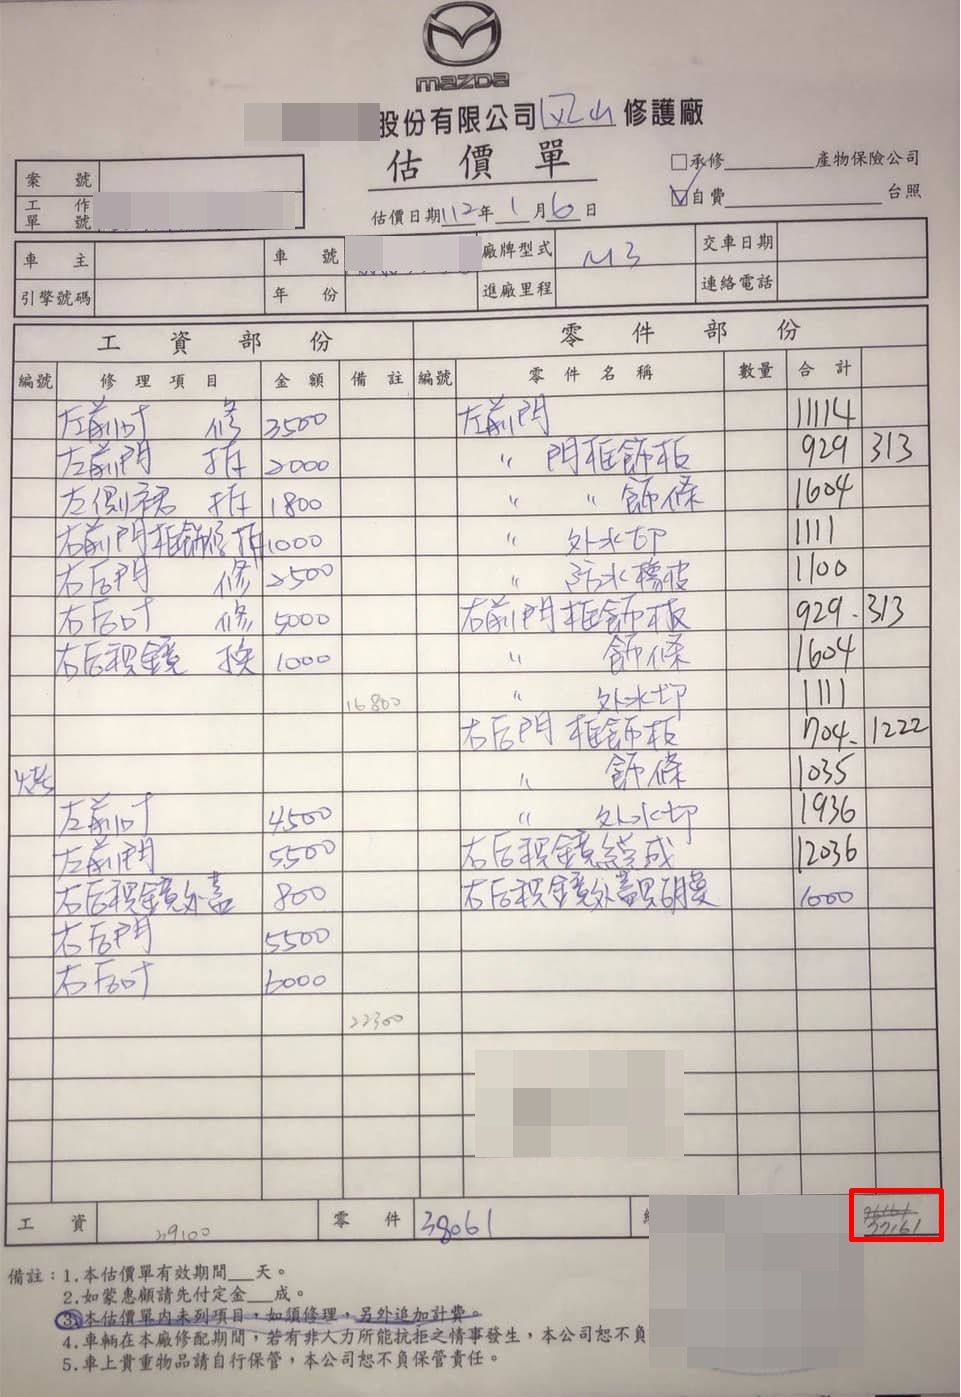 mazda
股份有限公司 鳳山 修護廠
估價單
承修 產物保險公司
自費 台照
案號
工作單號
估價日期 112 年 1 月 6 日
車主 車號 廠牌型式 M3 交車日期
引擎號碼 年份 進廠里程 連絡電話
工資部份 零件部份
編號 修理項目 金額 備註 編號 零件名稱 數量 合計
左前叶 修 3500 左前門 11114
左前門 拆 2000 〃 門框飾板 929 313
左側裙 拆 1800 〃 〃 飾條 1604
右前門框飾條拆 1000 〃 外水切 1111
右后門 修 2500 〃 防水橡皮 1100
右后叶 修 5000 右前門框飾板 929. 313
右后視鏡 換 1000 〃 飾條 1604
16800 〃 外水切 1111
右后門 框飾板 704. 1222
烤 〃 飾條 1035
左前叶 4500 〃 外水切 1936
左前門 5500 右后視鏡總成 12036
右后視鏡外蓋 800 右后視鏡外蓋 1000
右后門 5500
右后叶 6000
22300
工資 39100 零件 38061
備註：1.本估價單有效期間___天。
2.如蒙惠顧請先付定金___成。
3.本估價單內未列項目，如須修理，另外追加計費。
4.車輛在本廠修配期間，若有非人力所能抗拒之情事發生，本公司恕不負
5.車上貴重物品請自行保管，本公司恕不負保管責任。